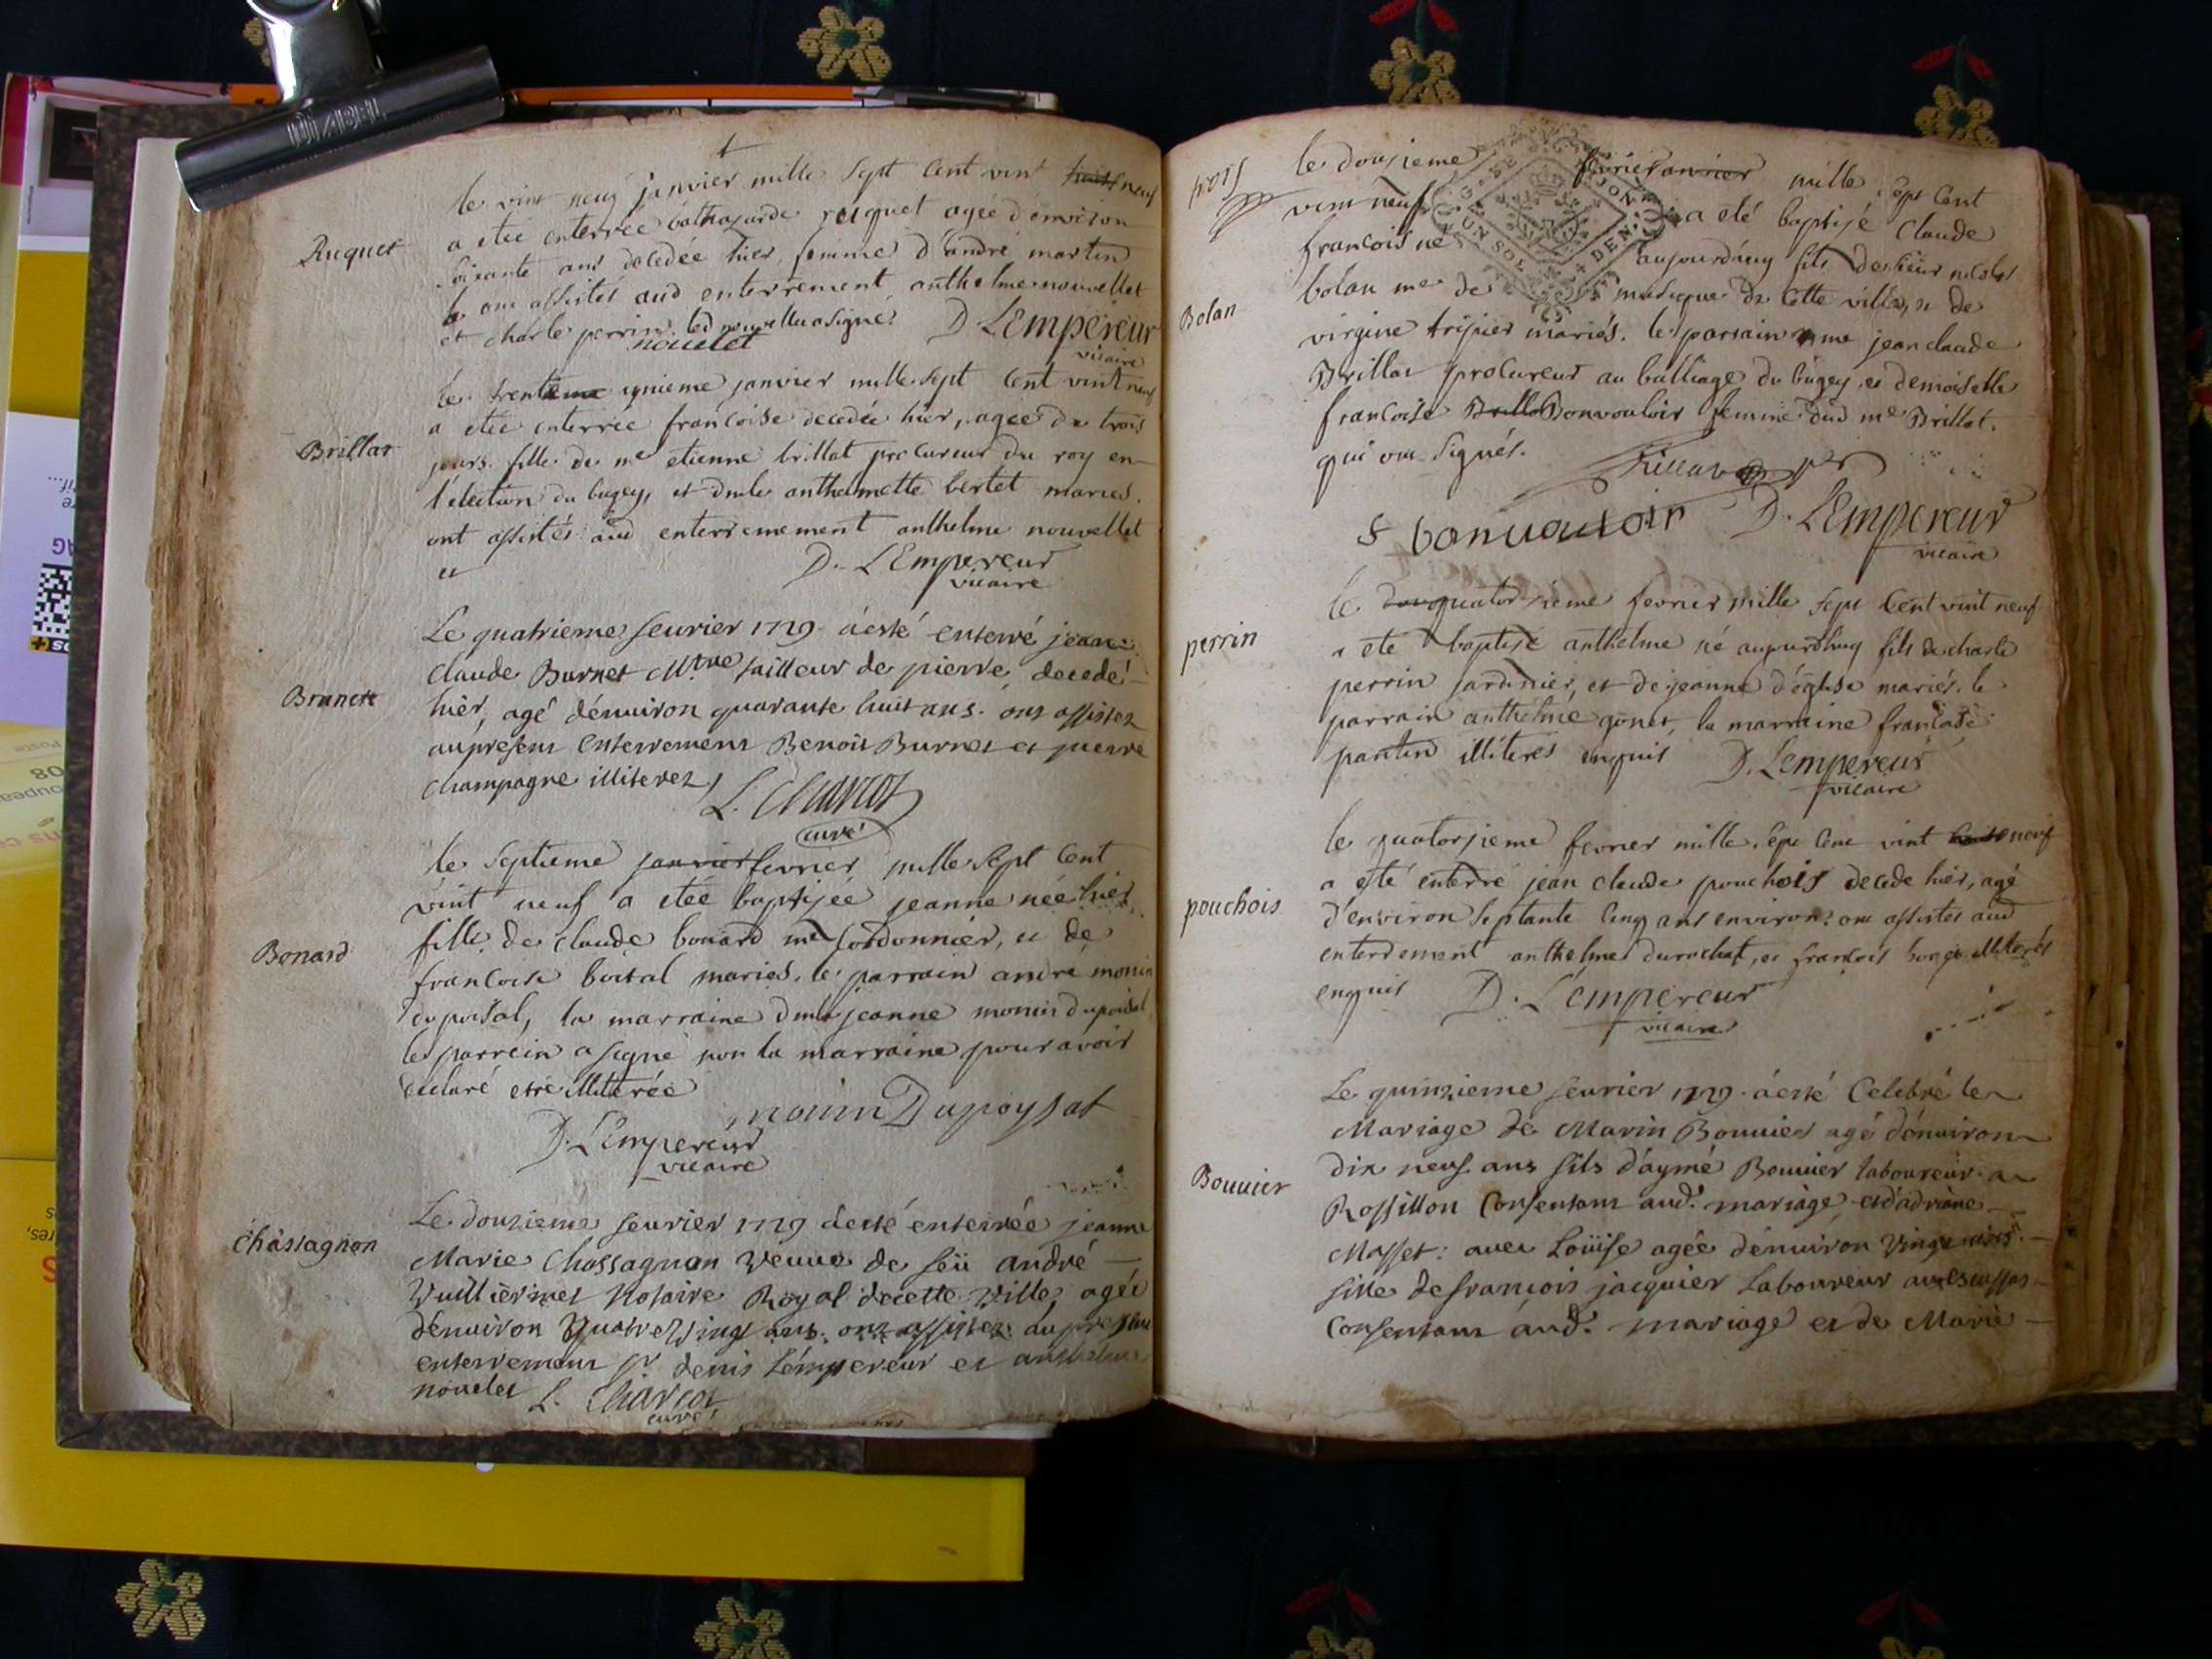 DIABEL
le vint neuf janvier mille sept cent vint huit neuf
Ruquet
a etée enterrée balthazarde ruquet agée d'environ
soixante ans decedée hier, femme d'andré martin
ont assistes aud enterrement anthelme nouvellet
et charle perrin led nouvellet a signé.
nouelet
D. LEmpereur
vicaire
le trentieme unieme janvier mille sept cent vint neuf
Brillat
a etée enterrée francoise decedée hier, agée de trois
jours fille de me etienne brillat procureur du roy en
l'election du bugey, et dmlle anthelmette bertet mariés.
ont assistés aud enterremement anthelme nouvellet
et
D. LEmpereur
vicaire
Le quatrieme feurier 1729 a esté enterré jean
claude Burnet Mtre tailleur de pierre, decedé
Brunete
hier, agé d'enuiron quarante huit ans. ont assistez
au present enterrement Benoit Burnet et pierre
champagne illiterez
L. Charcot
curé
le septieme janvier fevrier mille sept cent
vint neuf a etée baptisée jeanne née hier
Bonard
fille de claude bonard me cordonnier, et de
francoise boital mariés. le parrain andré monin
dupoisat, la marraine dmlle jeanne monin dupoisat
le parrein a signé non la marraine pour avoir
declaré etre illiterée
monin Dupoysat
D. LEmpereur
vicaire
Le douzieme feurier 1729 a esté enterrée jeanne
Chassagnon
Marie Chassagnon Veuue de feü andré
Vuilliermet Notaire Royal de cette Ville, agée
d'enuiron Quatre Vingt ans. ont assistez au present
enterrement Sr. denis Lémpereur et anthelme
nouelet
L. Charcot
curé
le dousieme fevrier janvier mille sept cent
vint neuf a eté baptisé claude
francois né aujourd'huy fils de sieur nicolas
Bolan
bolan me de musique de cette ville, et de
virgine tripier mariés. le parrain me jean claude
Brillat procureur au balliage du bugey et demoiselle
francoise Brillat Bonvouloir femme dud me Brillat.
qui ont signés.
f bonuouloir
D. LEmpereur
vicaire
le dou quatorsieme fevrier mille sept cent vint neuf
perrin
a eté baptisé anthelme né aujourdhuy fils de charle
perrin jardinier, et de jeanne d'église mariés. le
parrain anthelme gonet, la marraine francoise
pantin illiterés enquis
D. Lempereur
vicaire
le quatorsieme fevrier mille sept cent vint huit neuf
a eté enterré jean claude pouchois decede hier, agé
pouchois
d'environ septante cinq ans environ. ont assistes aud
enterrement anthelme durochat, et francois illiterés
enquis
D. LEmpereur
vicaire
Le quinzieme feurier 1729 a esté Celebré le
Mariage de Marin Bouuier agé d'enuiron
Bouuier
dix neuf ans fils d'aymé Bouuier laboureur a
Rossillon Consentant aud. mariage et d'adriane
Masset: auec Loüise agée d'enuiron Vingt trois
fille de francois jacquier Laboureur
Consentant aud. mariage et de Marie